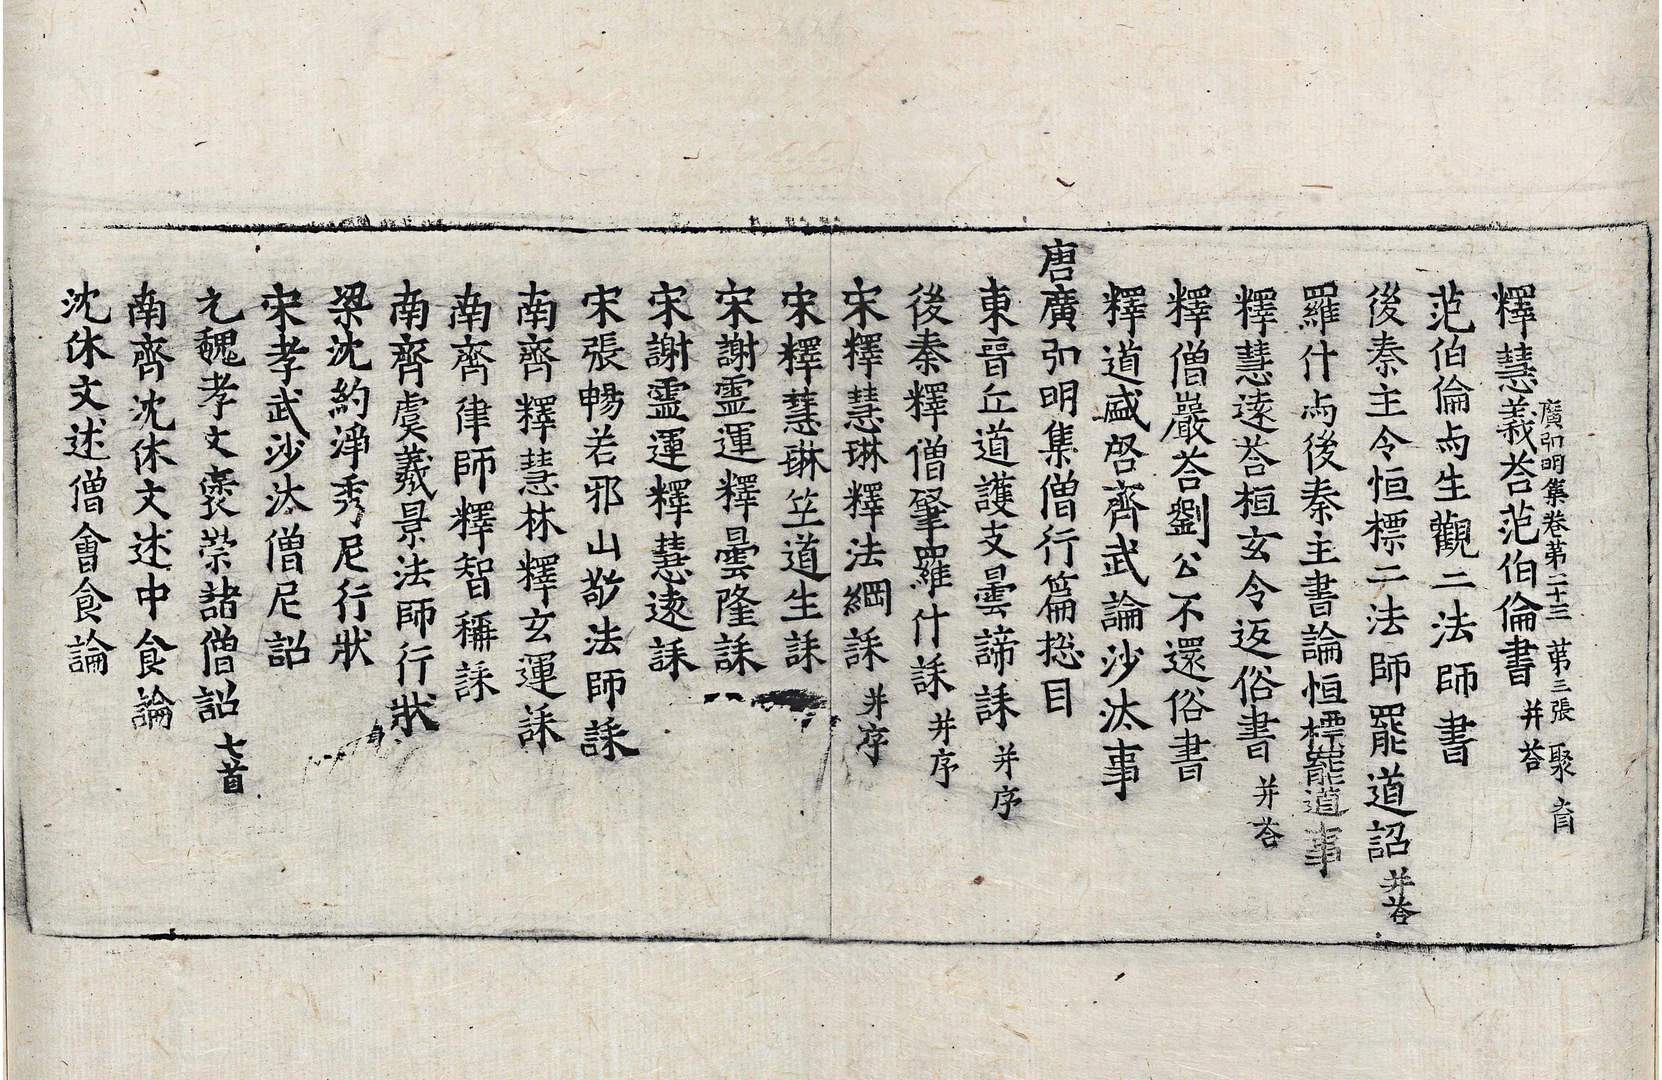 廣弘明集卷第二十三 第三張 聚
釋慧義荅范伯倫書 并荅
范伯倫与生觀二法師書
後秦主令恒標二法師罷道詔 并荅
羅什与後秦主書論恒標罷道事
釋慧遠荅桓玄令返俗書 并荅
釋僧巖荅劉公不還俗書
釋道盛啓齊武論沙汰事
唐廣弘明集僧行篇揔目
東晉丘道護支曇諦誄 并序
後秦釋僧肇羅什誄 并序
宋釋慧琳釋法綱誄 并序
宋釋慧琳竺道生誄
宋謝靈運釋曇隆誄
宋謝靈運釋慧遠誄
宋張暢若邪山敬法師誄
南齊釋慧林釋玄運誄
南齊律師釋智稱誄
南齊虞羲景法師行狀
梁沈約淨秀尼行狀
宋孝武沙汰僧尼詔
元魏孝文襃崇諸僧詔 七首
南齊沈休文述中食論
沈休文述僧會食論